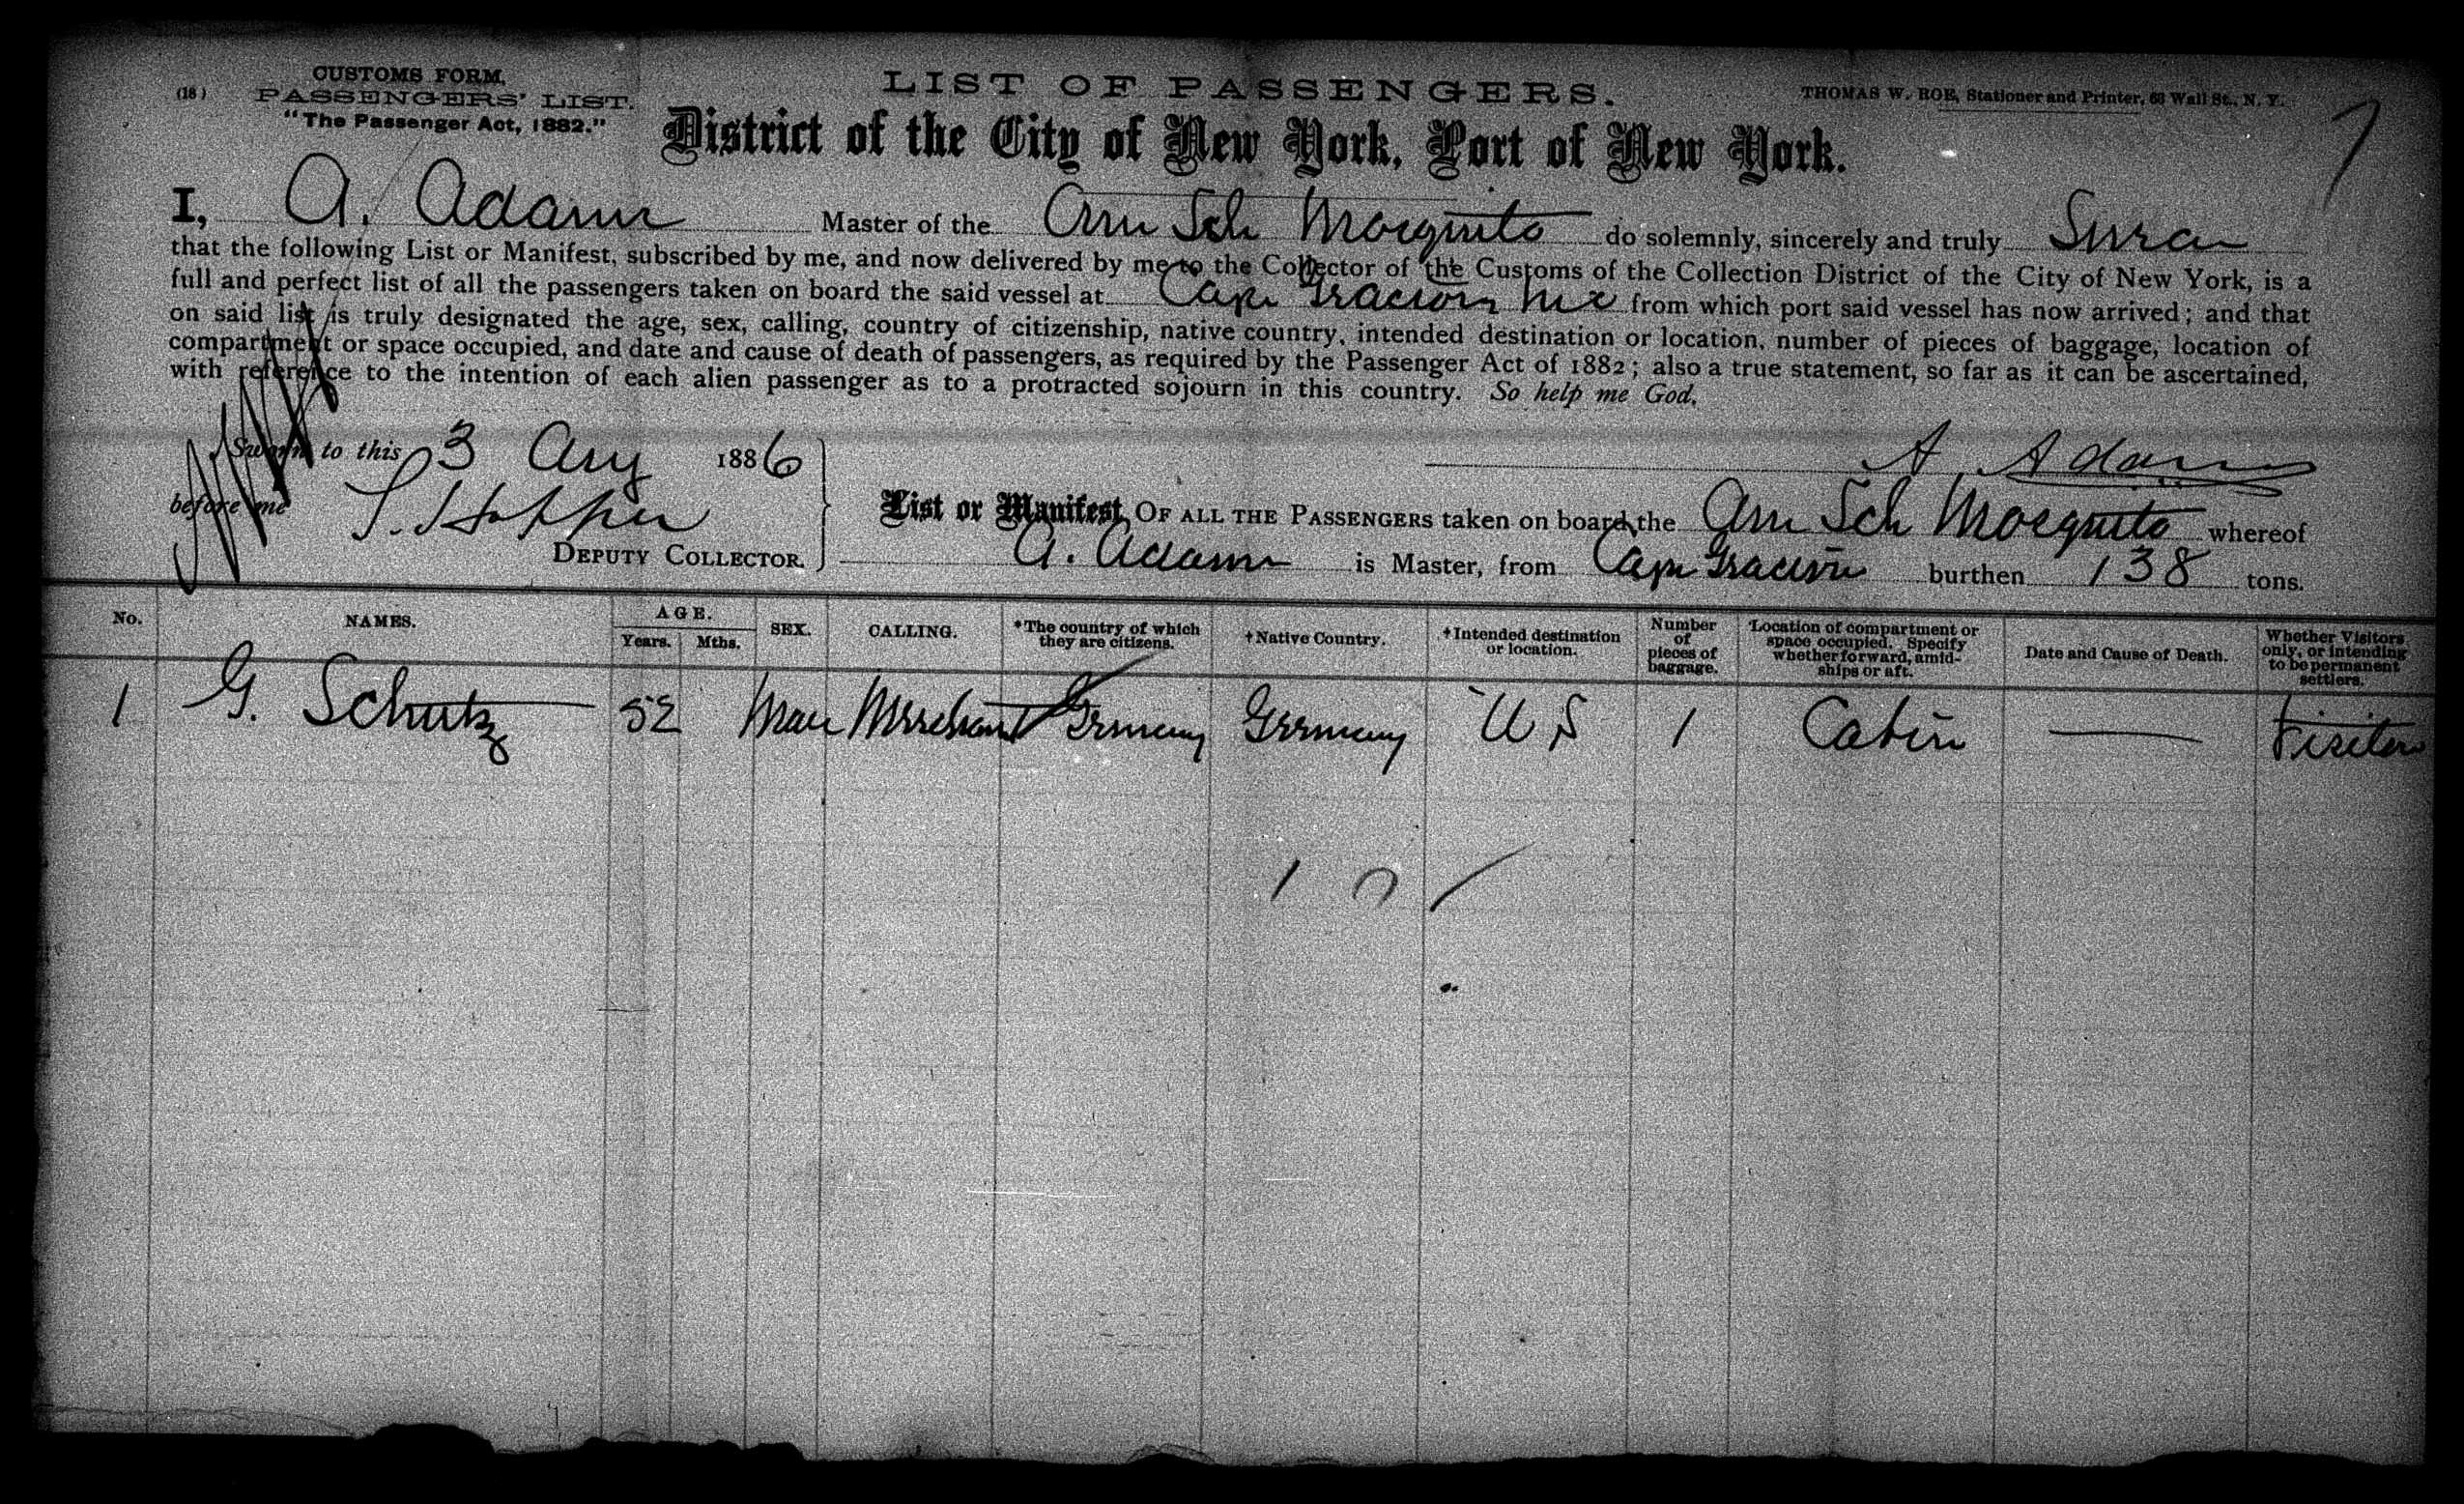 CUSTOMS FORM.
(18) PASSENGERS' LIST.
"The Passenger Act, 1882."
LIST OF PASSENGERS.
THOMAS W. ROE, Stationer and Printer, 63 Wall St., N. Y.
District of the City of New York, Port of New York.
I, A. Adams Master of the Am Sch Mosquito do solemnly, sincerely and truly Swear
that the following List or Manifest, subscribed by me, and now delivered by me to the Collector of the Customs of the Collection District of the City of New York, is a
full and perfect list of all the passengers taken on board the said vessel at Cape Gracios from which port said vessel has now arrived; and that
on said list is truly designated the age, sex, calling, country of citizenship, native country, intended destination or location, number of pieces of baggage, location of
compartment or space occupied, and date and cause of death of passengers, as required by the Passenger Act of 1882; also a true statement, so far as it can be ascertained,
with reference to the intention of each alien passenger as to a protracted sojourn in this country. So help me God.
Sworn to this 3 Aug 1886
A Adams
before me
DEPUTY COLLECTOR.
List or Manifest, OF ALL THE PASSENGERS taken on board the Am Sch Mosquito whereof
A. Adams is Master, from Cape Gracios burthen 138 tons.
No. NAMES. AGE. Years. Mths. SEX. CALLING. *The country of which they are citizens. †Native Country. †Intended destination or location. Number of pieces of baggage. Location of compartment or space occupied. Specify whether forward, amidships or aft. Date and Cause of Death. Whether Visitors only, or intending to be permanent settlers.
1 G. Schutz 52 Man Merchant Germany Germany U S 1 Cabin — Visitor